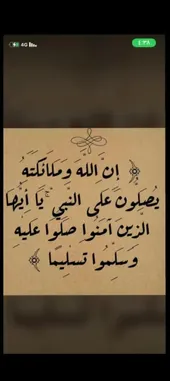 4G
٤:٣٨
﴿ إِنَّ اللَّهَ وَمَلَائِكَتَهُ
يُصَلُّونَ عَلَى النَّبِيِّ ۚ يَا أَيُّهَا
الَّذِينَ آمَنُوا صَلُّوا عَلَيْهِ
وَسَلِّمُوا تَسْلِيمًا ﴾